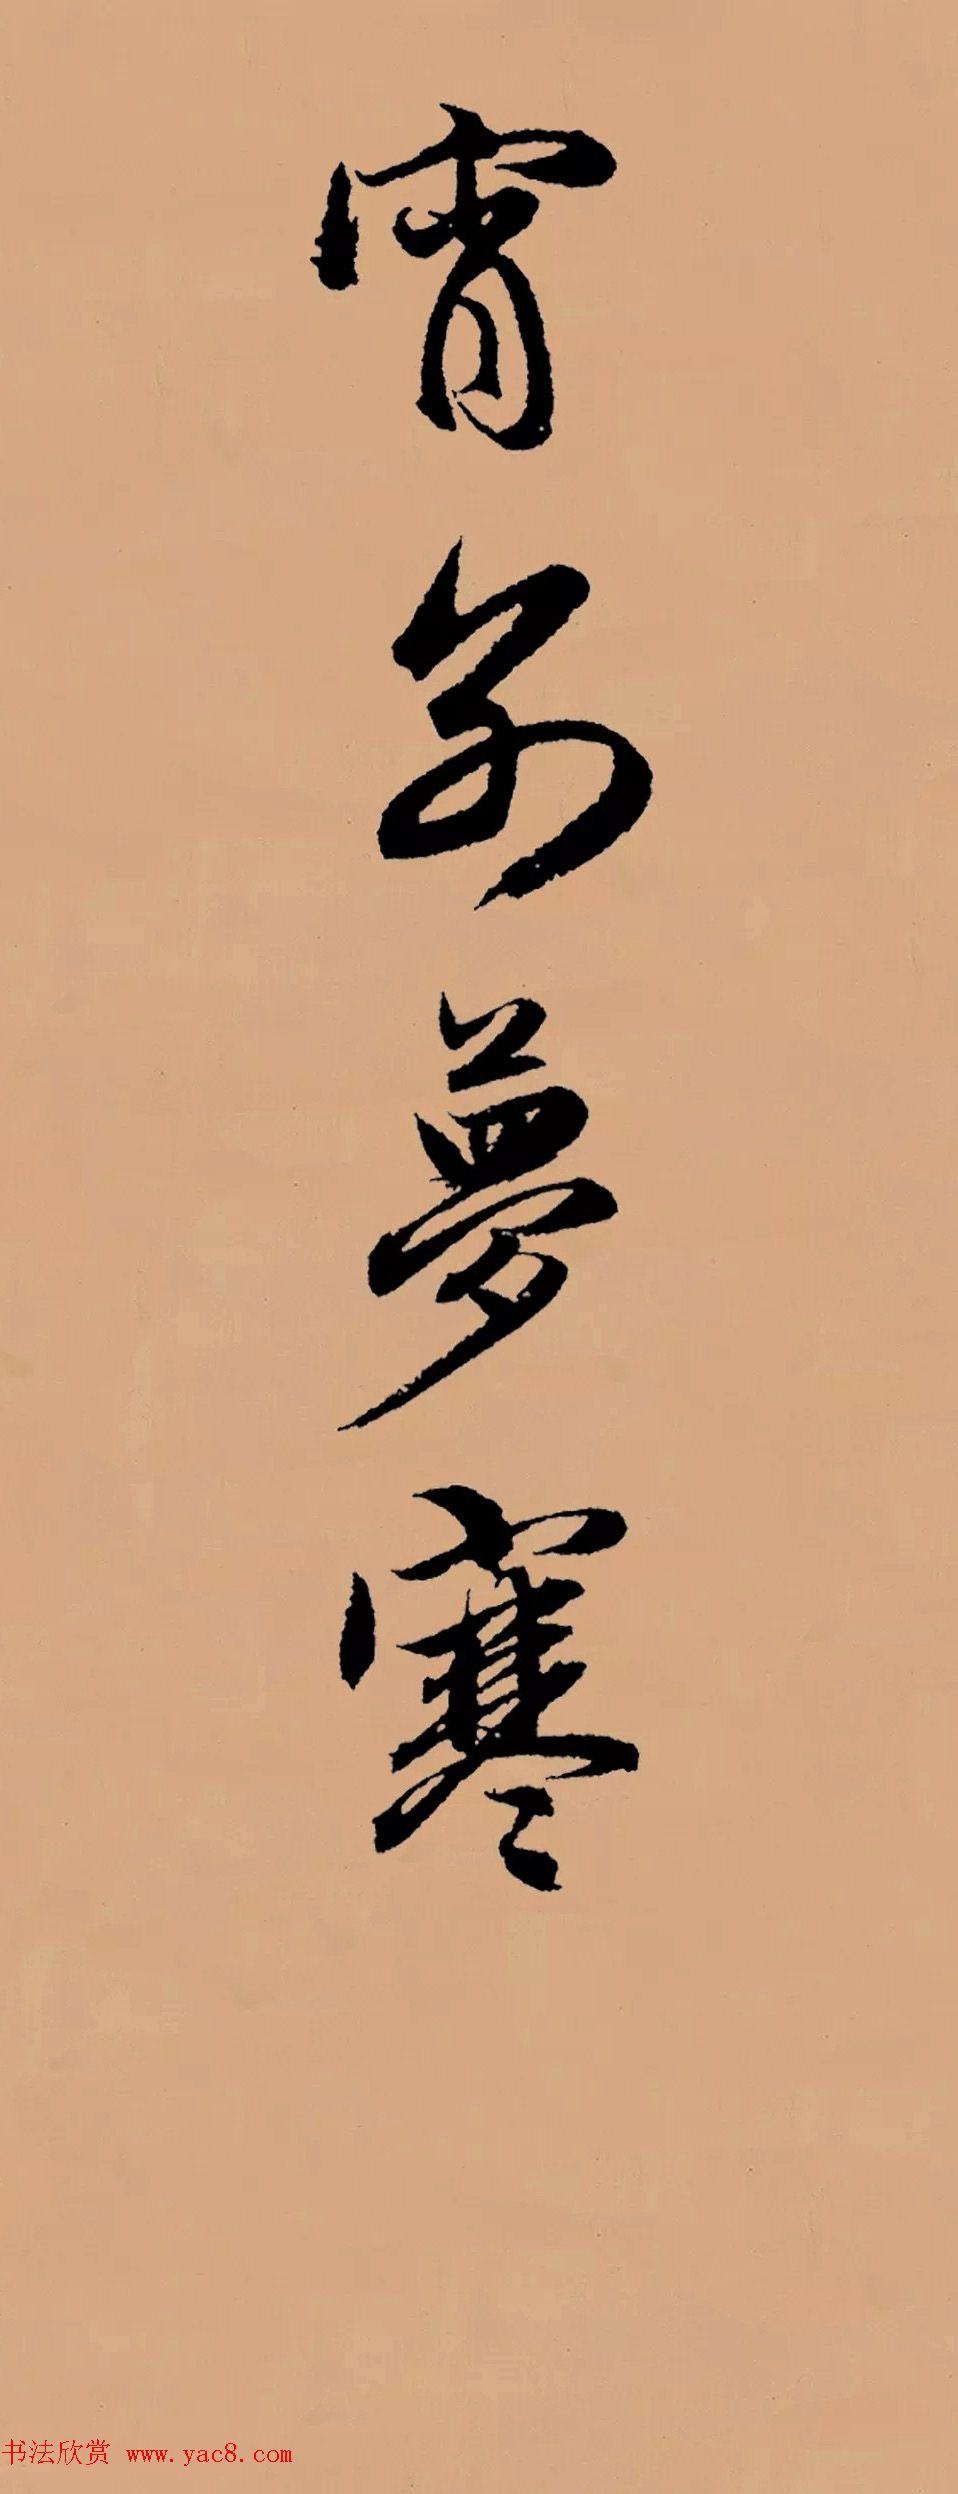 宵别夢寒
书法欣赏 www.yac8.com